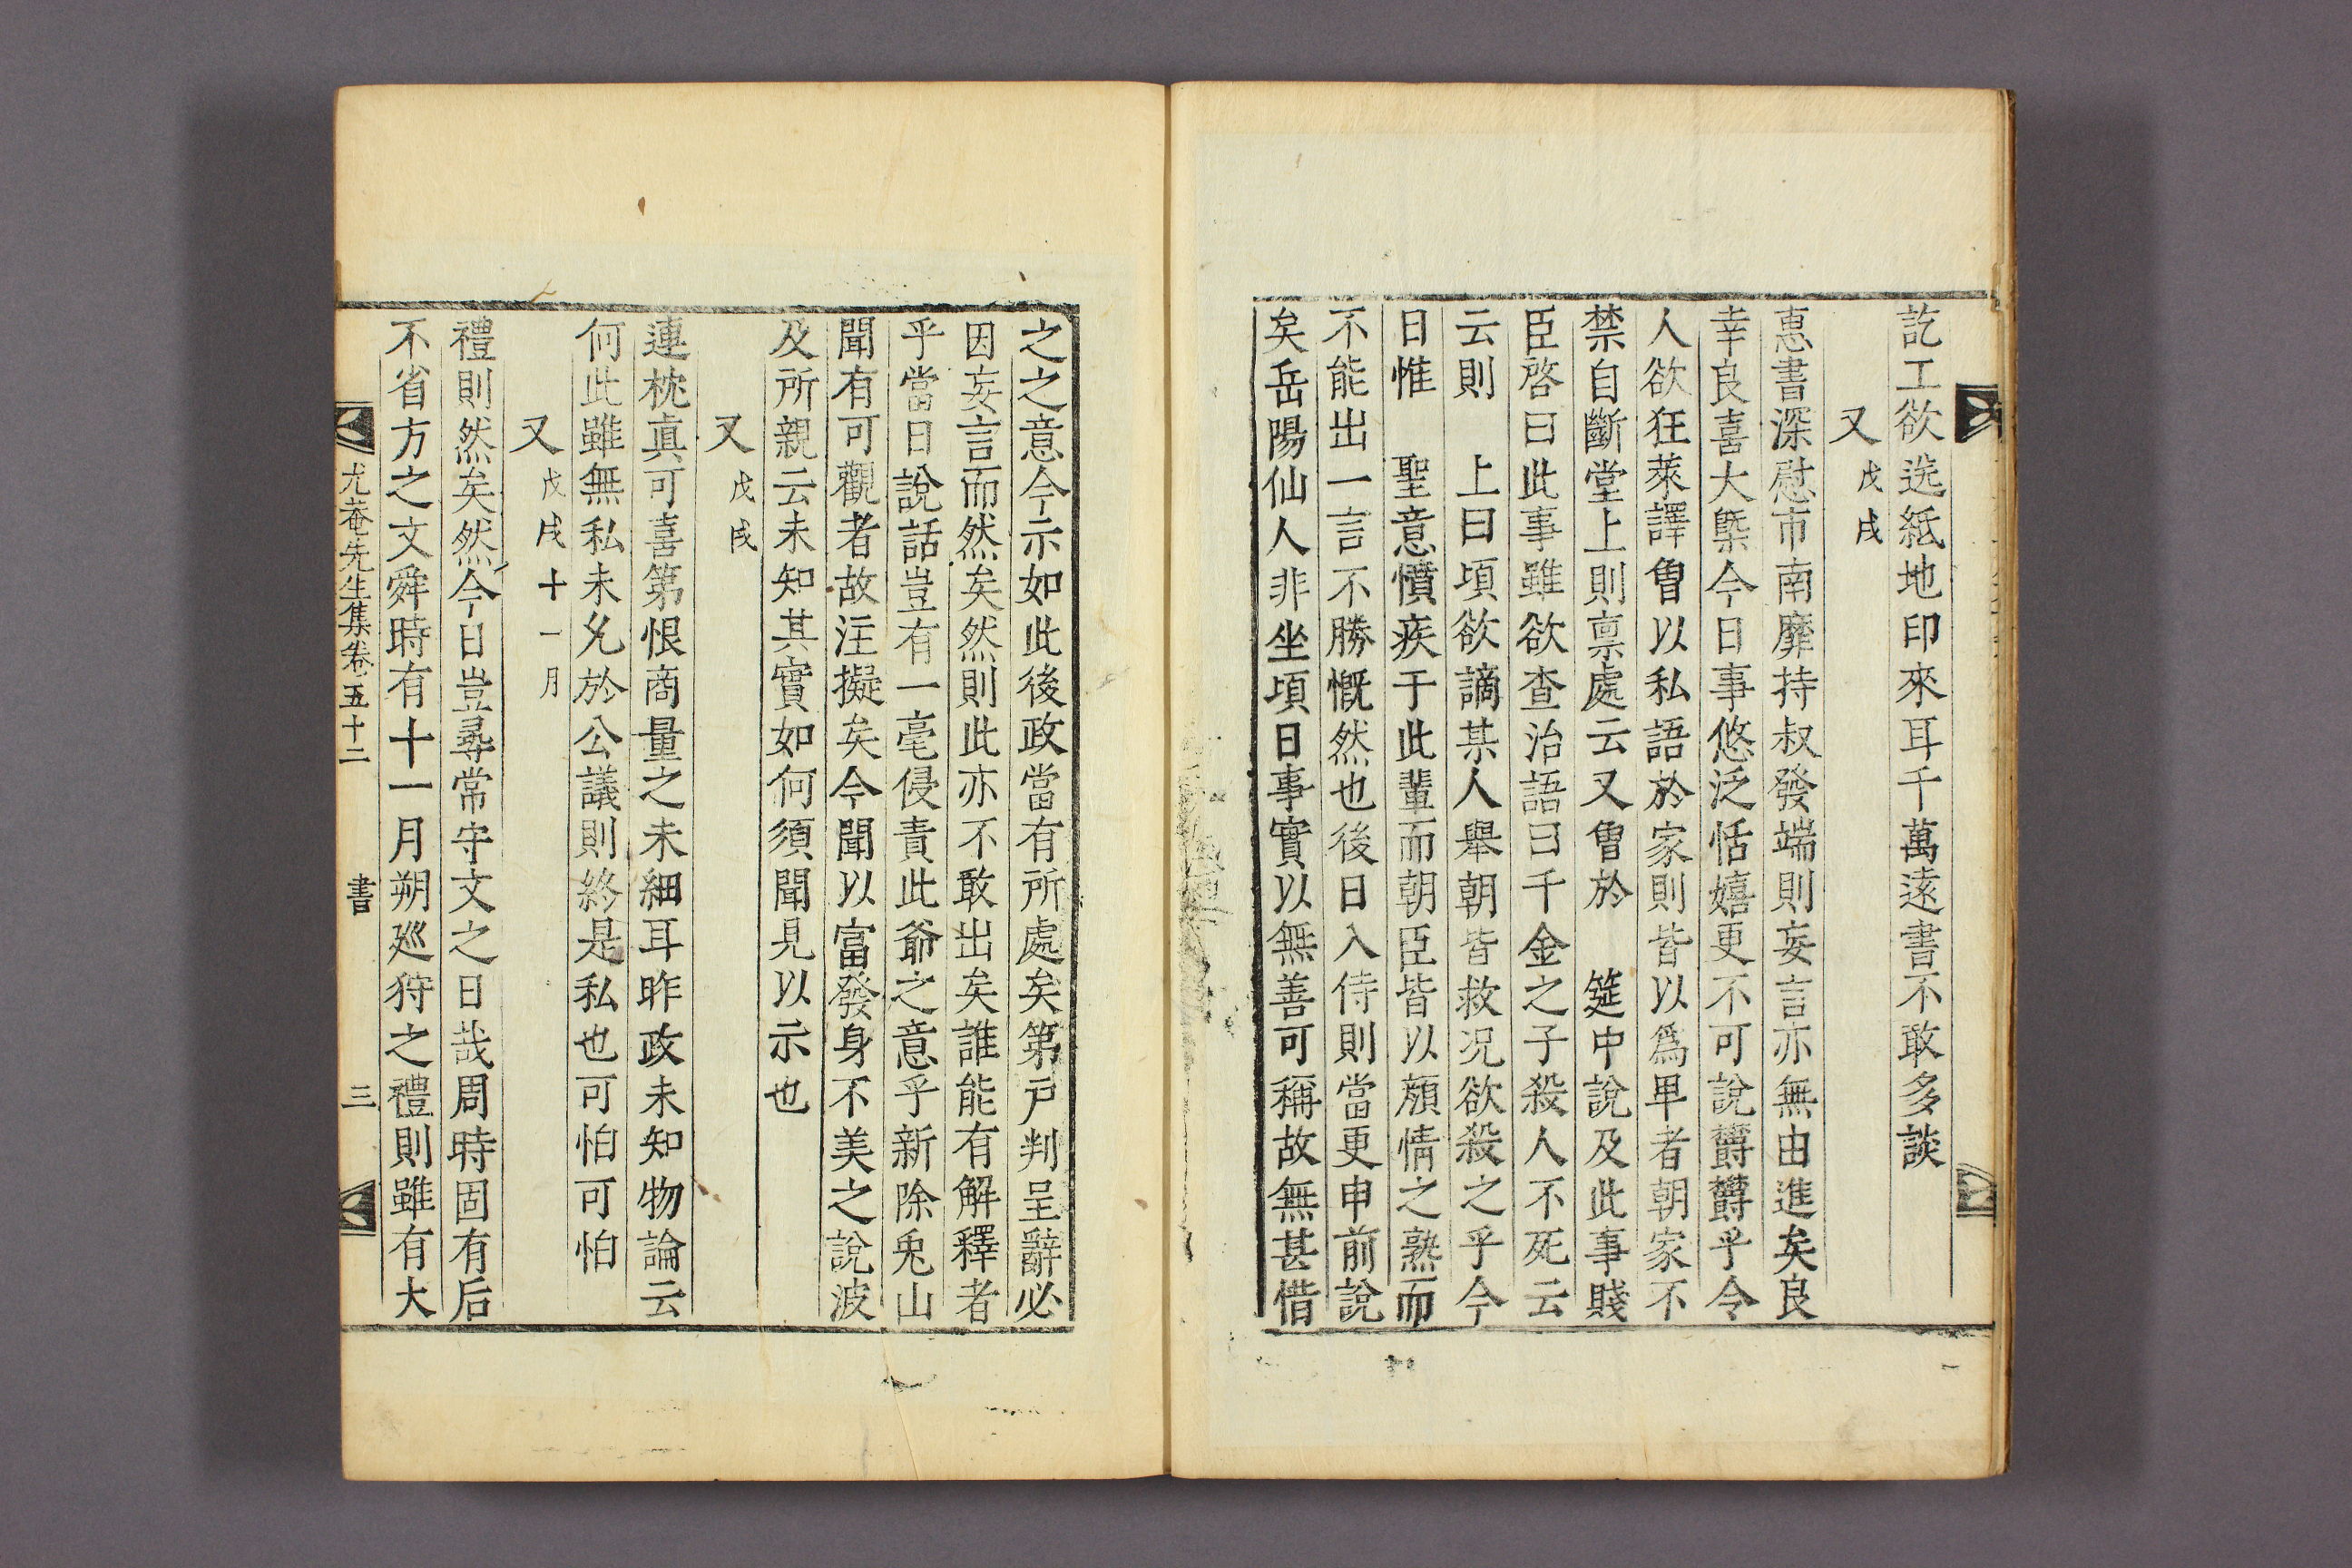 訖工欲送紙地印來耳千萬遠書不敢多談
又戊戌
惠書深慰市南靡持叔發端則妄言亦無由進矣良
幸良喜大槩今日事悠泛恬嬉更不可說欝欝乎令
人欲狂萊譯曾以私語於家則皆以爲卑者朝家不
禁自斷堂上則禀處云又曾於 筵中說及此事賤
臣啓曰此事雖欲查治語曰千金之子殺人不死云
云則 上曰頃欲謫某人舉朝皆救况欲殺之乎今
日惟 聖意憤疾于此輩而朝臣皆以顏情之熟而
不能出一言不勝慨然也後日入侍則當更申前說
矣岳陽仙人非坐頃日事實以無善可稱故無甚惜
之之意今示如此後政當有所處矣第戸判呈辭必
因妄言而然矣然則此亦不敢出矣誰能有解釋者
乎當日說話豈有一毫侵責此爺之意乎新除兎山
聞有可觀者故注擬矣今聞以富發身不美之說波
及所親云未知其實如何須聞見以示也
又戊戌
連枕眞可喜第恨商量之未細耳昨政未知物論云
何此雖無私未免於公議則終是私也可怕可怕
又戊戌十一月
禮則然矣然今日豈尋常守文之日哉周時固有后
不省方之文舜時有十一月朔廵狩之禮則雖有大
尤菴先生集卷五十二 書 三